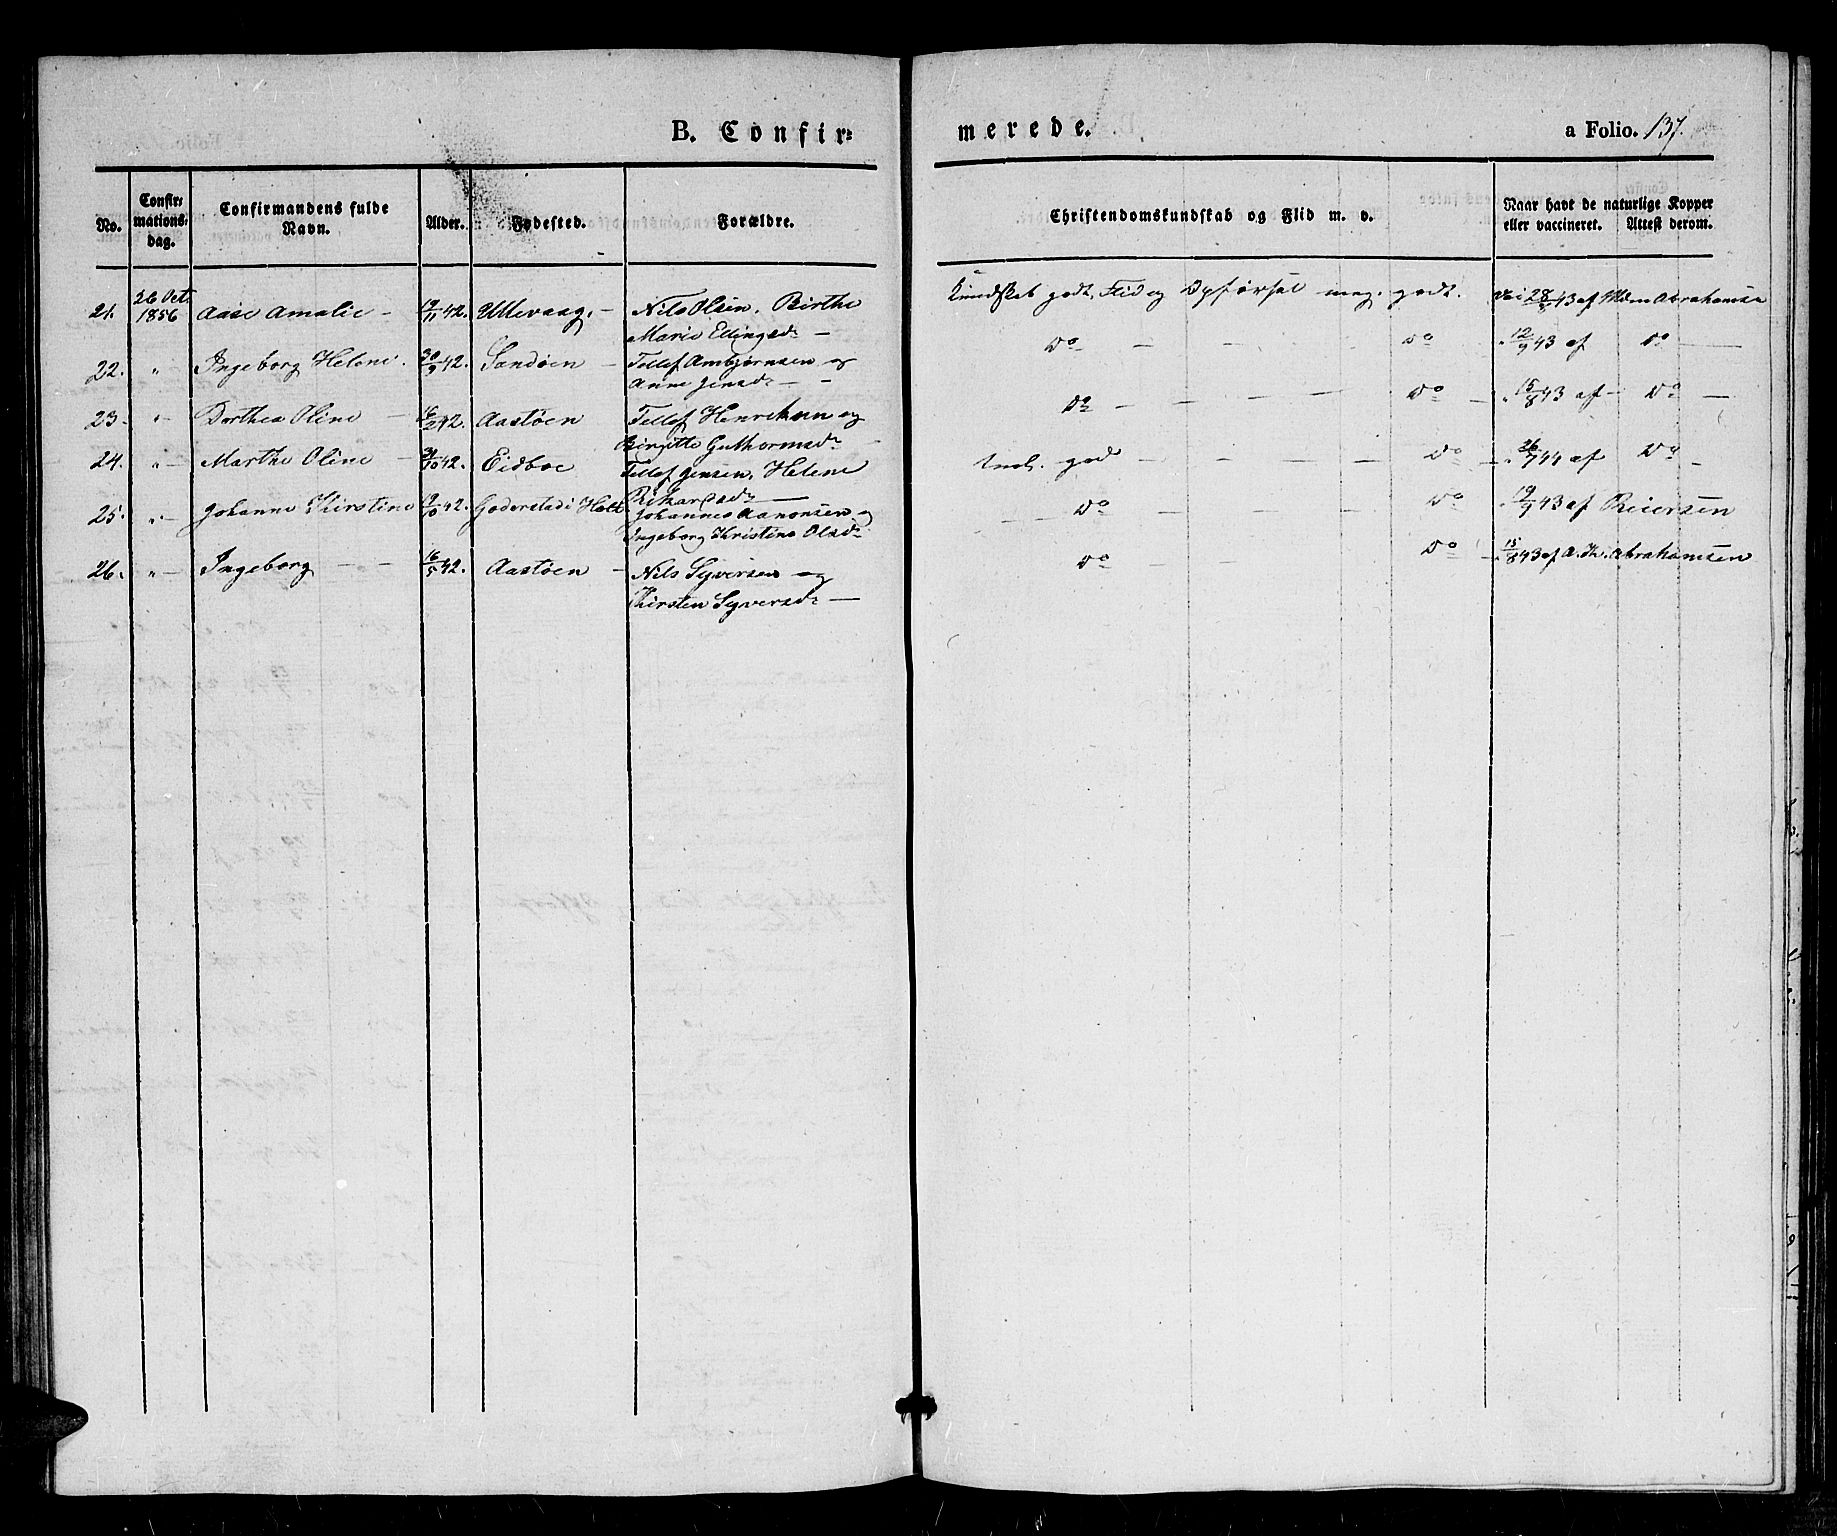 B. Confir=
merede.
a Folio. 137.
No.
Confir=
mations=
dag.
Confirmandens fulde
Navn.
Alder.
Fødested.
Forældre.
Christendomskundskab og Flid m. v.
Naar havt de naturlige Kopper
eller vaccineret. Attest derom.
21. 26 Oct. 1856 Aase Amalie – 19/11 42. Ullevaag. – Nils Olsen. Birthe
Marie Ellingsdr –
Kundskab godt, Flid og Opførsel meg. godt. 28/8 43 af Abrahamsen
22. " Ingeborg Helene. 30/9 42. Sandøen – Tellef Ambjørnsen og
Anne Jensdr –
Do – – – – Do " 12/9 43 af Do –
23. " Dorthea Oline – 16/2 42. Aastøen Tellef Henriksen og
Birgitte Guthormsdr –
Do – – – – Do – " 15/8 43 af – Do –
24. " Marthe Oline – 31/10 42. Eidboe Tellef Jensen. Helene
Rikarsdr –
godt – – – – Do – " 26/7 44 af Do –
25. " Johanne Kirstine 19/10 42. Goderstad i Holt Johannes Aanonsen og
Ingeborg Kristine Olsdr
– – Do – – – – Do – " 19/9 43 af Reiersen
26. " Ingeborg – – 16/5 42. Aastøen – Nils Syversen og
Kirsten Syversdr –
Do – – Do – " 15/8 43 af A. Th. Abrahamsen